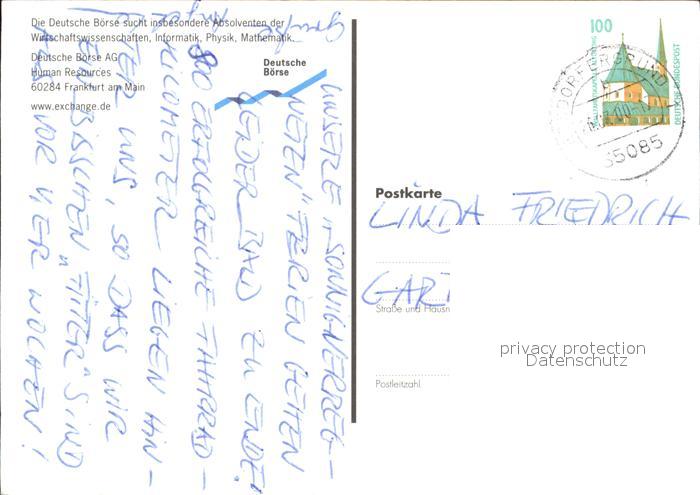 Die Deutsche Börse sucht insbesondere Absolventen der
Wirtschaftswissenschaften, Informatik, Physik, Mathematik.
Deutsche Börse AG
Human Resources
60284 Frankfurt am Main
www.exchange.de
Deutsche
Börse
UNSERE „SONNIG-VERREG-
NETEN" FERIEN GEHEN
LEIDER BALD ZU ENDE!
800 ERFOLGREICHE FAHRRAD-
KILOMETER LIEGEN HIN-
TER UNS, SO DASS WIR
EIN BISSCHEN „FITTER" SIND
ALS VOR VIER WOCHEN!
Grüße
100
DEUTSCHE BUNDESPOST
35085
Postkarte
LINDA FRIEDRICH
GART
Straße und Hausn
Postleitzahl
privacy protection
Datenschutz